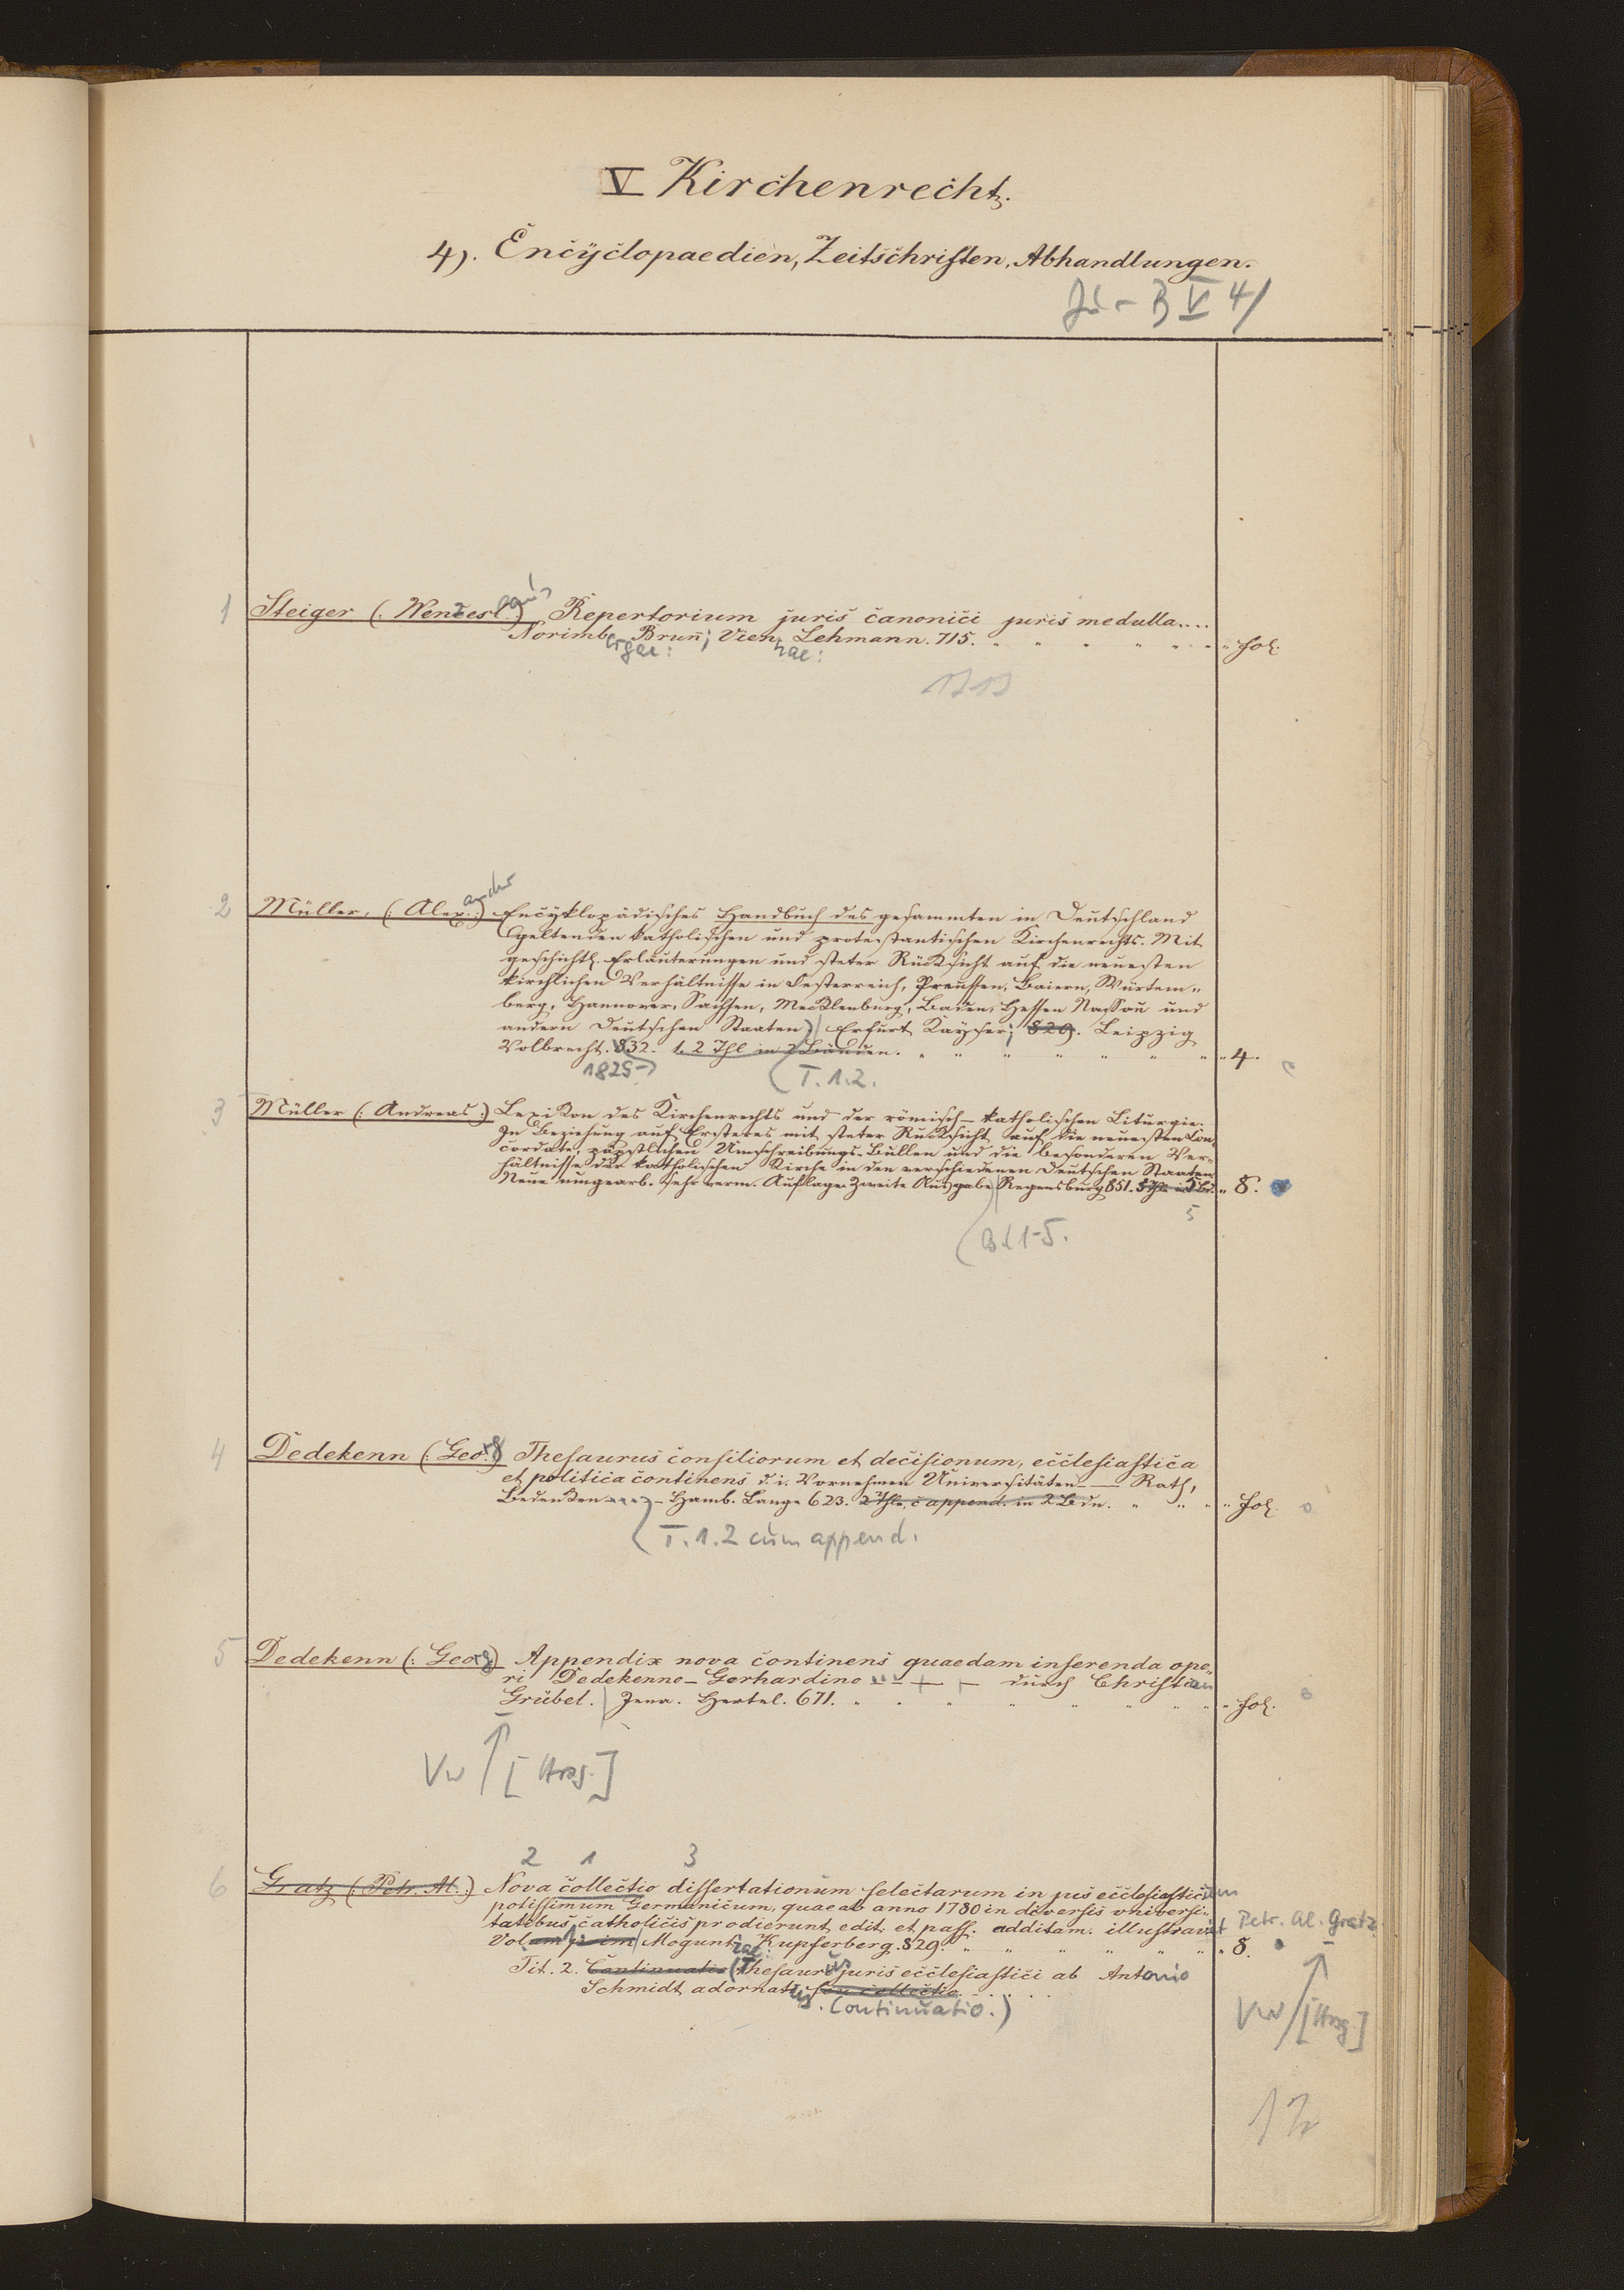 V Kirchenrecht.
4). Encÿclopaedien, Zeitschriften, Abhandlungen.
B V 4/
1 Steiger (: Wenzeslaus) Repertorium juris canonici juris medulla....
Norimbergae: Brun; Viennae: Lehmann. 715. Fol.
1715
2 Müller, (: Alexander) Encÿklopädisches Handbuch des gesammten in Deutschland
geltenden katholischen und protestantischen Kirchenrechts. Mit
geschichtl. Erläuterungen und steter Rücksicht auf die neuesten
kirchlichen Verhältnisse in Oesterreich, Preussen, Baiern, Würtem-
berg, Hannover, Sachsen, Mecklenburg, Baden, Hessen Nassau und
andern Deutschen Staaten) Erfurt Kayser; 829. Leipzig
Volbrecht. 832. 1. 2 Thl in 2 Bänden. 4.
1829-
(T. 1.2.
3 Müller (: Andreas :) Lexikon des Kirchenrechts und der römisch-katholischen Liturgie.
In Beziehung auf Ersteres mit steter Rücksicht auf die neuesten Con
cordate, päpstlichen Umschreibungs-Bullen und die besonderen Ver-
hältnisse der katholischen Kirche in den verschiedenen Deutschen Staaten
Neue umgearb. sehr verm. Auflage. Zweite Ausgabe Regensburg 851. 5 Thl. 8.
5
(Bd 1-5.
4 Dedekenn (: Georg) Thesaurus consiliorum et decisionum, ecclesiastica
et politica continens d. i. Vornehmen Universitäten — Rath,
Bedenken - Hamb. Lange 623. 2 Thle. c append. in 2 Bdn. Fol.
(T. 1.2 cum append.
5 Dedekenn (: Georg) Appendix nova continens quaedam inserenda ope-
ri Dedekenno-Gerhardino durch Christian
Grübel. Jena. Hertel. 671. Fol.
Vw [Hrsg.]
2 1 3
6 Gratz (: Petr. Al. :) Nova collectio dissertationum selectarum in jus ecclesiasticum
potissimum Germanicum, quae ab anno 1780 in diversis vniversi-
tatibus catholicis prodierunt edit. et pass. additam. illustravit Petr. Al. Gratz
Vol. prim Moguntiae: Kupferberg. 829. 8.
Tit. 2. Continuatio (Thesauri juris ecclesiastici ab Antonio
Schmidt adornati seu collectio
Continuatio.)
Vw [Hrsg.]
12